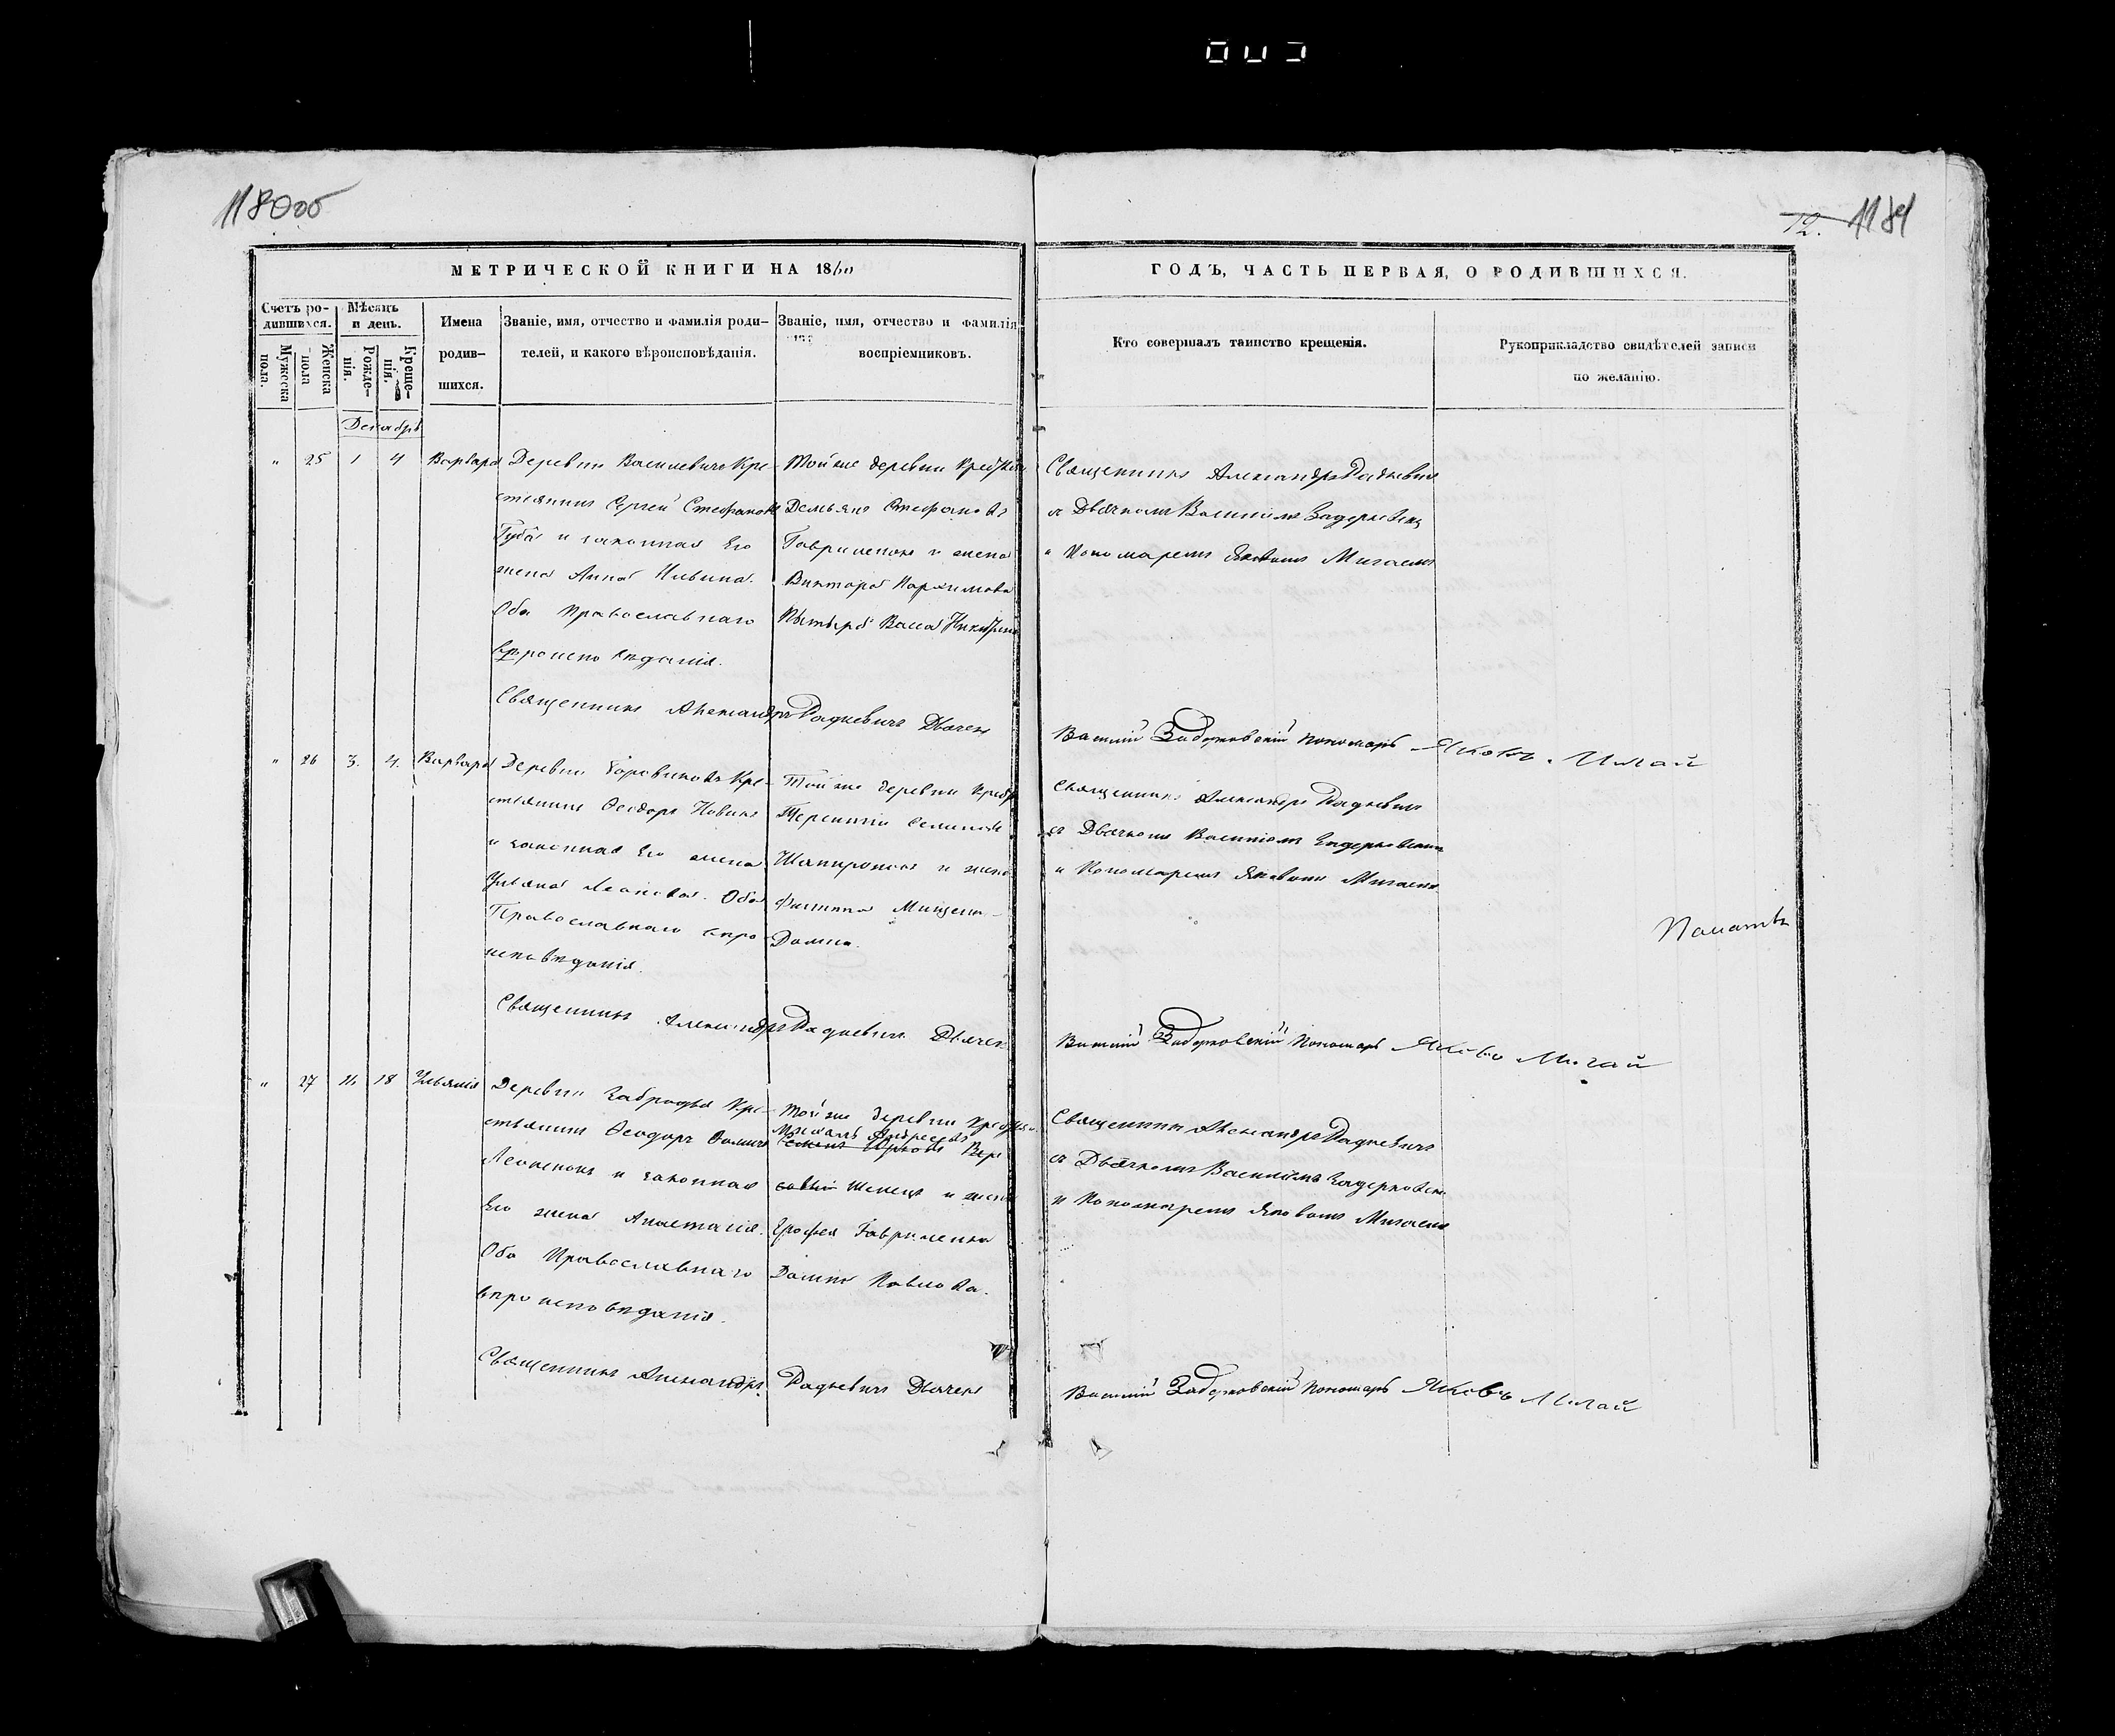 118об
12. 1181
МЕТРИЧЕСКОЙ КНИГИ НА 1860
ГОДЪ, ЧАСТЬ ПЕРВАЯ, О РОДИВШИХСЯ.
Счетъ родившихся.
Мужеска пола.
Женска пола
Мѣсяцъ и день.
Рожденія.
Крещенія.
Имена родившихся.
Званіе, имя, отчество и фамилія родителей, и какого вѣроисповѣданія.
Званіе, имя, отчество и фамилія воспріемниковъ.
Кто совершалъ таинство крещенія.
Рукоприкладство свидѣтелей записи по желанію.
Декабрь
" 25 1 4 Варвара
Деревни Василевичъ Кре-
стьянинъ Сергей Стефановъ
Губа и законная Его
жена Анна Ильина.
Оба Православнаго
вѣроисповѣданія.
Той же деревни
Демьянъ Стефановъ
Гавриленокъ и жена
Священникъ Александръ Радкевичъ
съ Дьячкомъ Василіемъ
и Пономаремъ Яковомъ Мигаемъ
Священникъ Александръ Радкевичъ Дьячекъ
Василій Задерковскій Пономарь Яковъ Мигай
" 26 3. 4. Варвара
Деревни Боровиковъ Кре-
стьянинъ Ѳеодоръ Новикъ
и законная Его жена
Ульяна Леонова. Оба
Православнаго вѣро-
исповѣданія.
Той же деревни
Терентій
и жена
Домна.
Священникъ Александръ Радкевичъ
съ Дьячкомъ Василіемъ
и Пономаремъ Яковомъ Мигаемъ
Священникъ Александръ Радкевичъ Дьячекъ
Василій Задерковскій Пономарь Яковъ Мигай
" 27 16 18 Ульянія
Деревни Забродья Кре-
стьянинъ Ѳеодоръ Ѳоминъ
Леоненокъ и законная
Его жена Анастасія.
Оба Православнаго
вѣроисповѣданія.
Той же деревни
Михаилъ Андреевъ
Шевецъ и жена
Гавриленка
Домна Павлова.
Священникъ Александръ Радкевичъ
съ Дьячкомъ Василіемъ
и Пономаремъ Яковомъ Мигаемъ
Священникъ Александръ Радкевичъ Дьячекъ
Василій Задерковскій Пономарь Яковъ Мигай